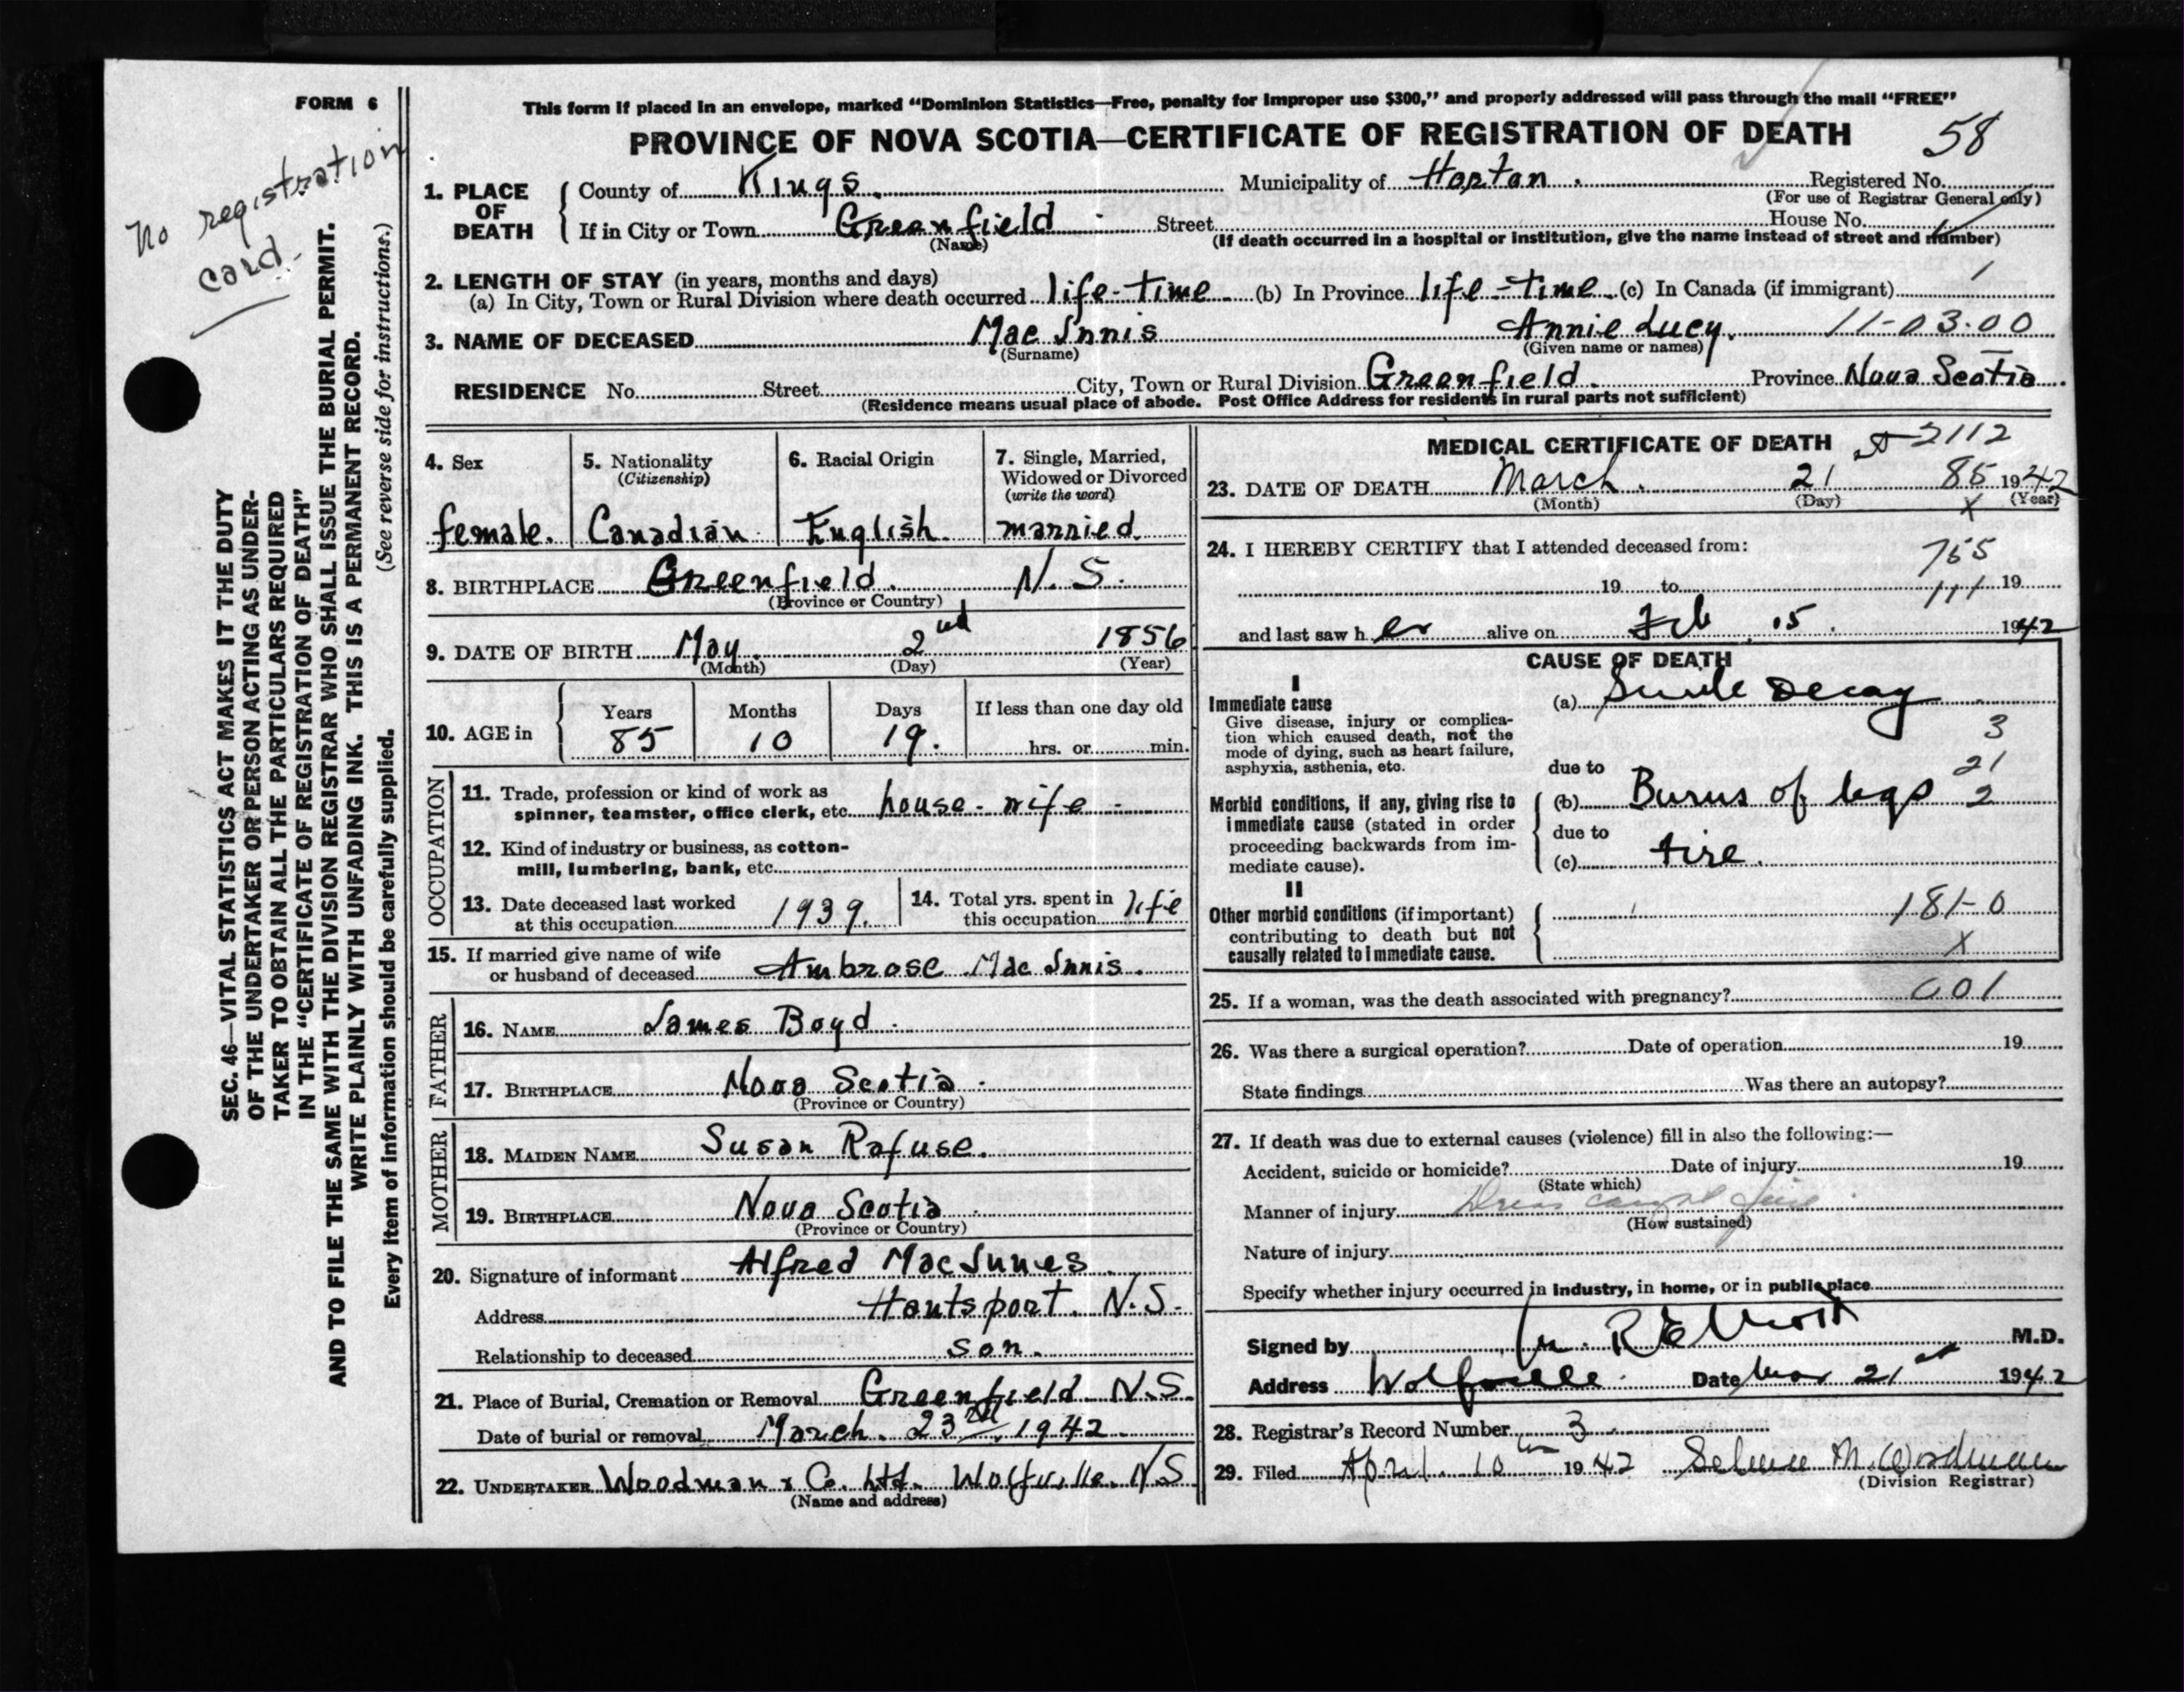 FORM 6
No registration
card
SEC. 46—VITAL STATISTICS ACT MAKES IT THE DUTY
OF THE UNDERTAKER OR PERSON ACTING AS UNDER-
TAKER TO OBTAIN ALL THE PARTICULARS REQUIRED
IN THE "CERTIFICATE OF REGISTRATION OF DEATH"
AND TO FILE THE SAME WITH THE DIVISION REGISTRAR WHO SHALL ISSUE THE BURIAL PERMIT.
WRITE PLAINLY WITH UNFADING INK. THIS IS A PERMANENT RECORD.
Every item of information should be carefully supplied. (See reverse side for instructions.)
This form if placed in an envelope, marked "Dominion Statistics—Free, penalty for improper use $300," and properly addressed will pass through the mail "FREE"
PROVINCE OF NOVA SCOTIA—CERTIFICATE OF REGISTRATION OF DEATH 58
1. PLACE OF DEATH County of Kings. Municipality of Horton. Registered No.
(For use of Registrar General only)
If in City or Town Greenfield Street House No.
(Name) (If death occurred in a hospital or institution, give the name instead of street and number)
2. LENGTH OF STAY (in years, months and days)
(a) In City, Town or Rural Division where death occurred life-time (b) In Province life-time (c) In Canada (if immigrant)
3. NAME OF DECEASED Mac Innis Annie Lucy. 11-03-00
(Surname) (Given name or names)
RESIDENCE No. Street City, Town or Rural Division Greenfield. Province Nova Scotia
(Residence means usual place of abode. Post Office Address for residents in rural parts not sufficient)
4. Sex
female.
5. Nationality
(Citizenship)
Canadian
6. Racial Origin
English.
7. Single, Married,
Widowed or Divorced
(write the word)
married.
8. BIRTHPLACE Greenfield. N. S.
(Province or Country)
9. DATE OF BIRTH May 2nd 1856
(Month) (Day) (Year)
10. AGE in Years Months Days If less than one day old
85 10 19. hrs. or min.
OCCUPATION
11. Trade, profession or kind of work as
spinner, teamster, office clerk, etc. house-wife
12. Kind of industry or business, as cotton-
mill, lumbering, bank, etc.
13. Date deceased last worked
at this occupation 1939.
14. Total yrs. spent in
this occupation life
15. If married give name of wife
or husband of deceased Ambrose Mac Innis.
FATHER
16. NAME James Boyd
17. BIRTHPLACE Nova Scotia
(Province or Country)
MOTHER
18. MAIDEN NAME Susan Rafuse.
19. BIRTHPLACE Nova Scotia
(Province or Country)
20. Signature of informant Alfred MacInnes
Address Hantsport. N.S.
Relationship to deceased son.
21. Place of Burial, Cremation or Removal Greenfield N.S.
Date of burial or removal March. 23rd, 1942
22. UNDERTAKER Woodman & Co. Ltd. Wolfville. N.S
(Name and address)
MEDICAL CERTIFICATE OF DEATH 2112
23. DATE OF DEATH March. 21 85 1942
(Month) (Day) x (Year)
24. I HEREBY CERTIFY that I attended deceased from:
755
19 to 111 19
and last saw her alive on Feb. 15. 1942
CAUSE OF DEATH
I
Immediate cause
Give disease, injury or complica-
tion which caused death, not the
mode of dying, such as heart failure,
asphyxia, asthenia, etc.
(a) Senile Decay
3
due to 21
Morbid conditions, if any, giving rise to
immediate cause (stated in order
proceeding backwards from im-
mediate cause).
(b) Burns of legs 2
due to
(c) fire.
II
Other morbid conditions (if important)
contributing to death but not
causally related to immediate cause.
181-0
X
25. If a woman, was the death associated with pregnancy? 001
26. Was there a surgical operation? Date of operation 19
State findings Was there an autopsy?
27. If death was due to external causes (violence) fill in also the following:—
Accident, suicide or homicide? Date of injury 19
(State which)
Manner of injury Dress caught fire
(How sustained)
Nature of injury
Specify whether injury occurred in industry, in home, or in public place
Signed by M.D.
Address Wolfville. Date Mar 21st 1942
28. Registrar's Record Number 3
29. Filed April 10 1942 M. Woodman
(Division Registrar)